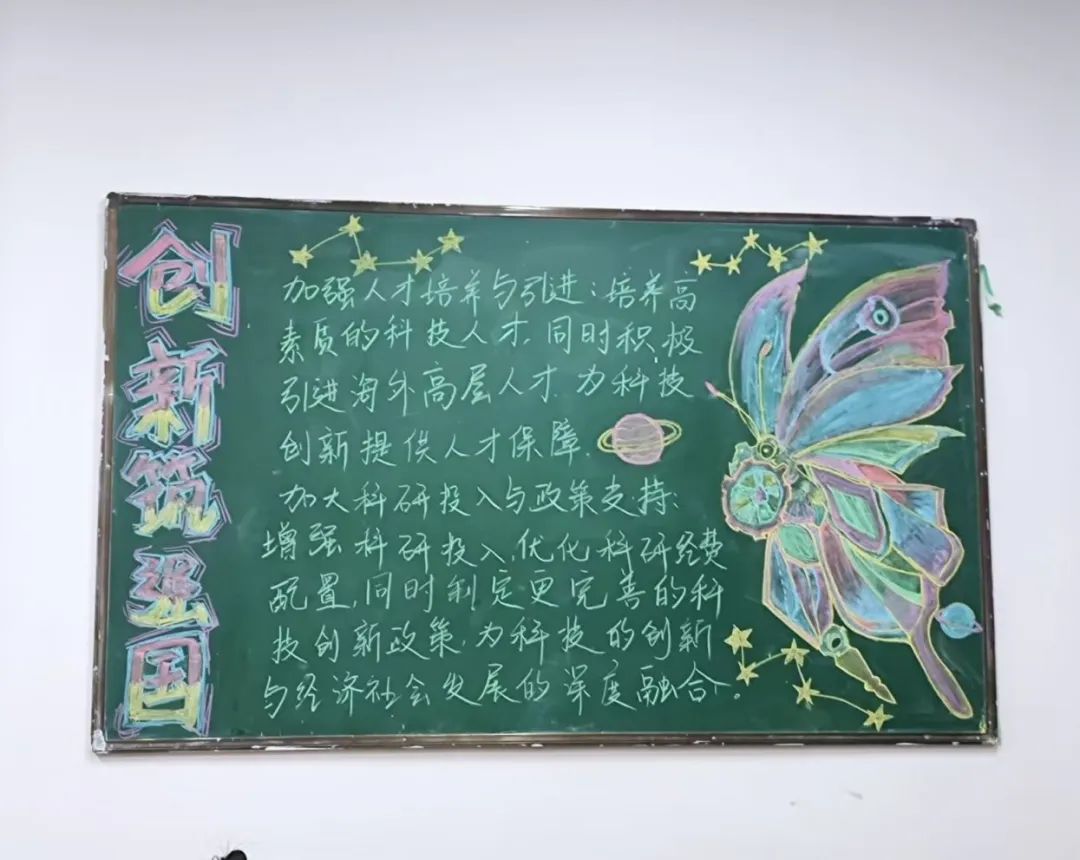 创新筑强国
加强人才培养与引进:培养高
素质的科技人才,同时积极
引进海外高层人才,为科技
创新提供人才保障.
加大科研投入与政策支持:
增强科研投入,优化科研经费
配置,同时制定更完善的科
技创新政策,为科技的创新
与经济社会发展的深度融合。